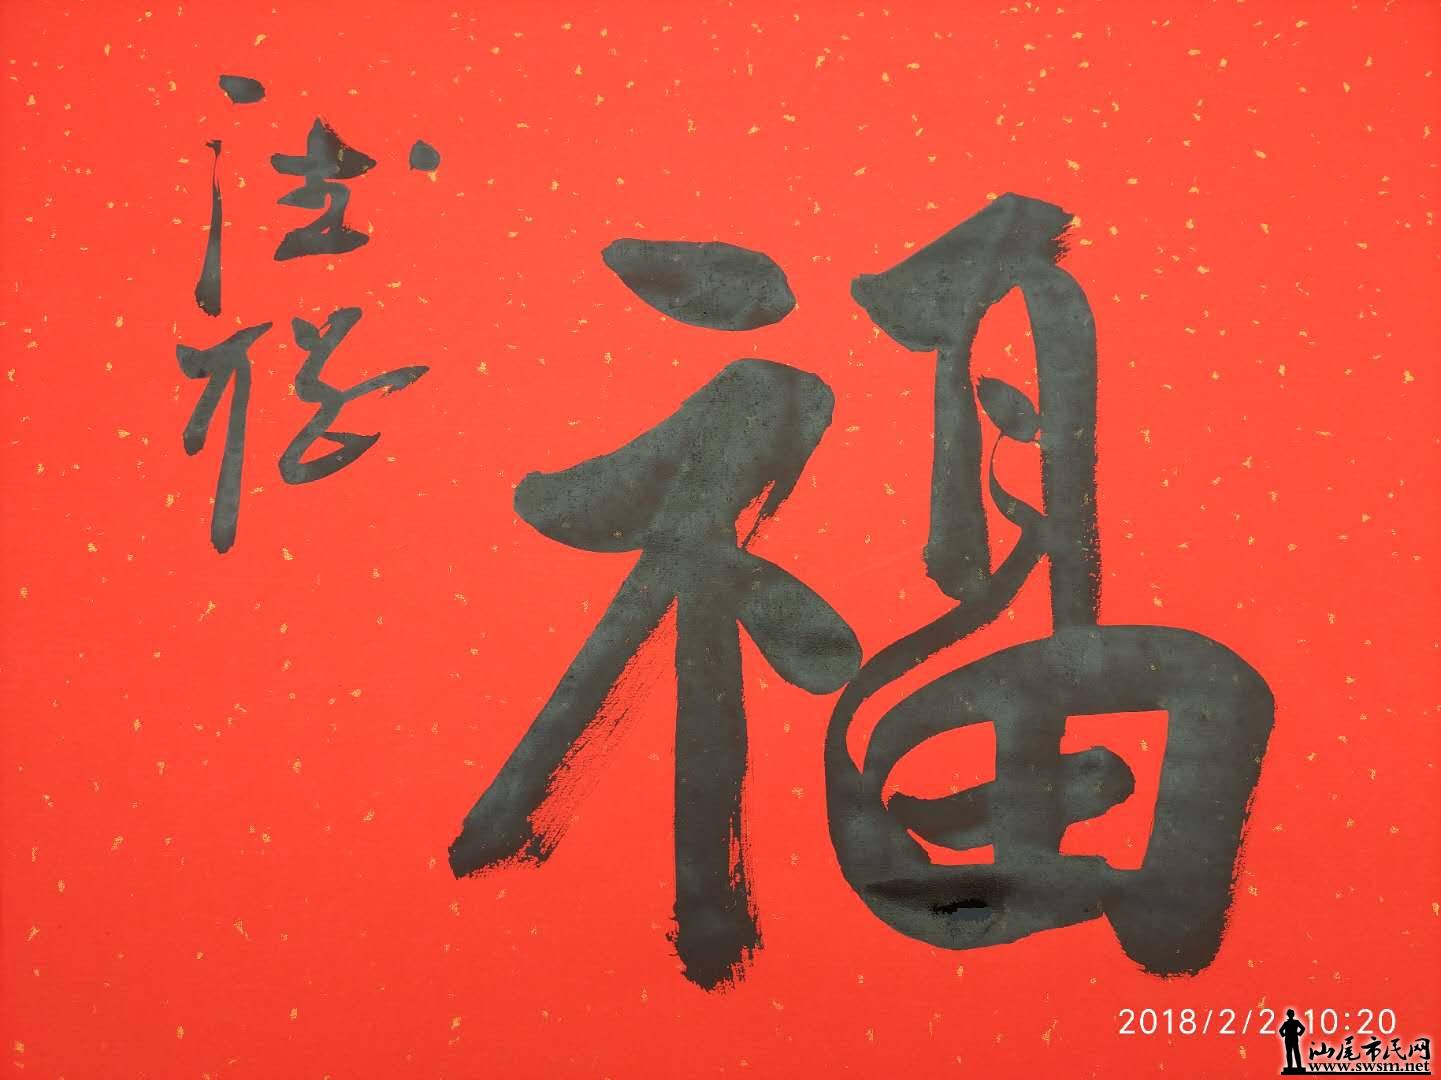 福
2018/2/2 10:20
汕尾市民网
www.swsm.net